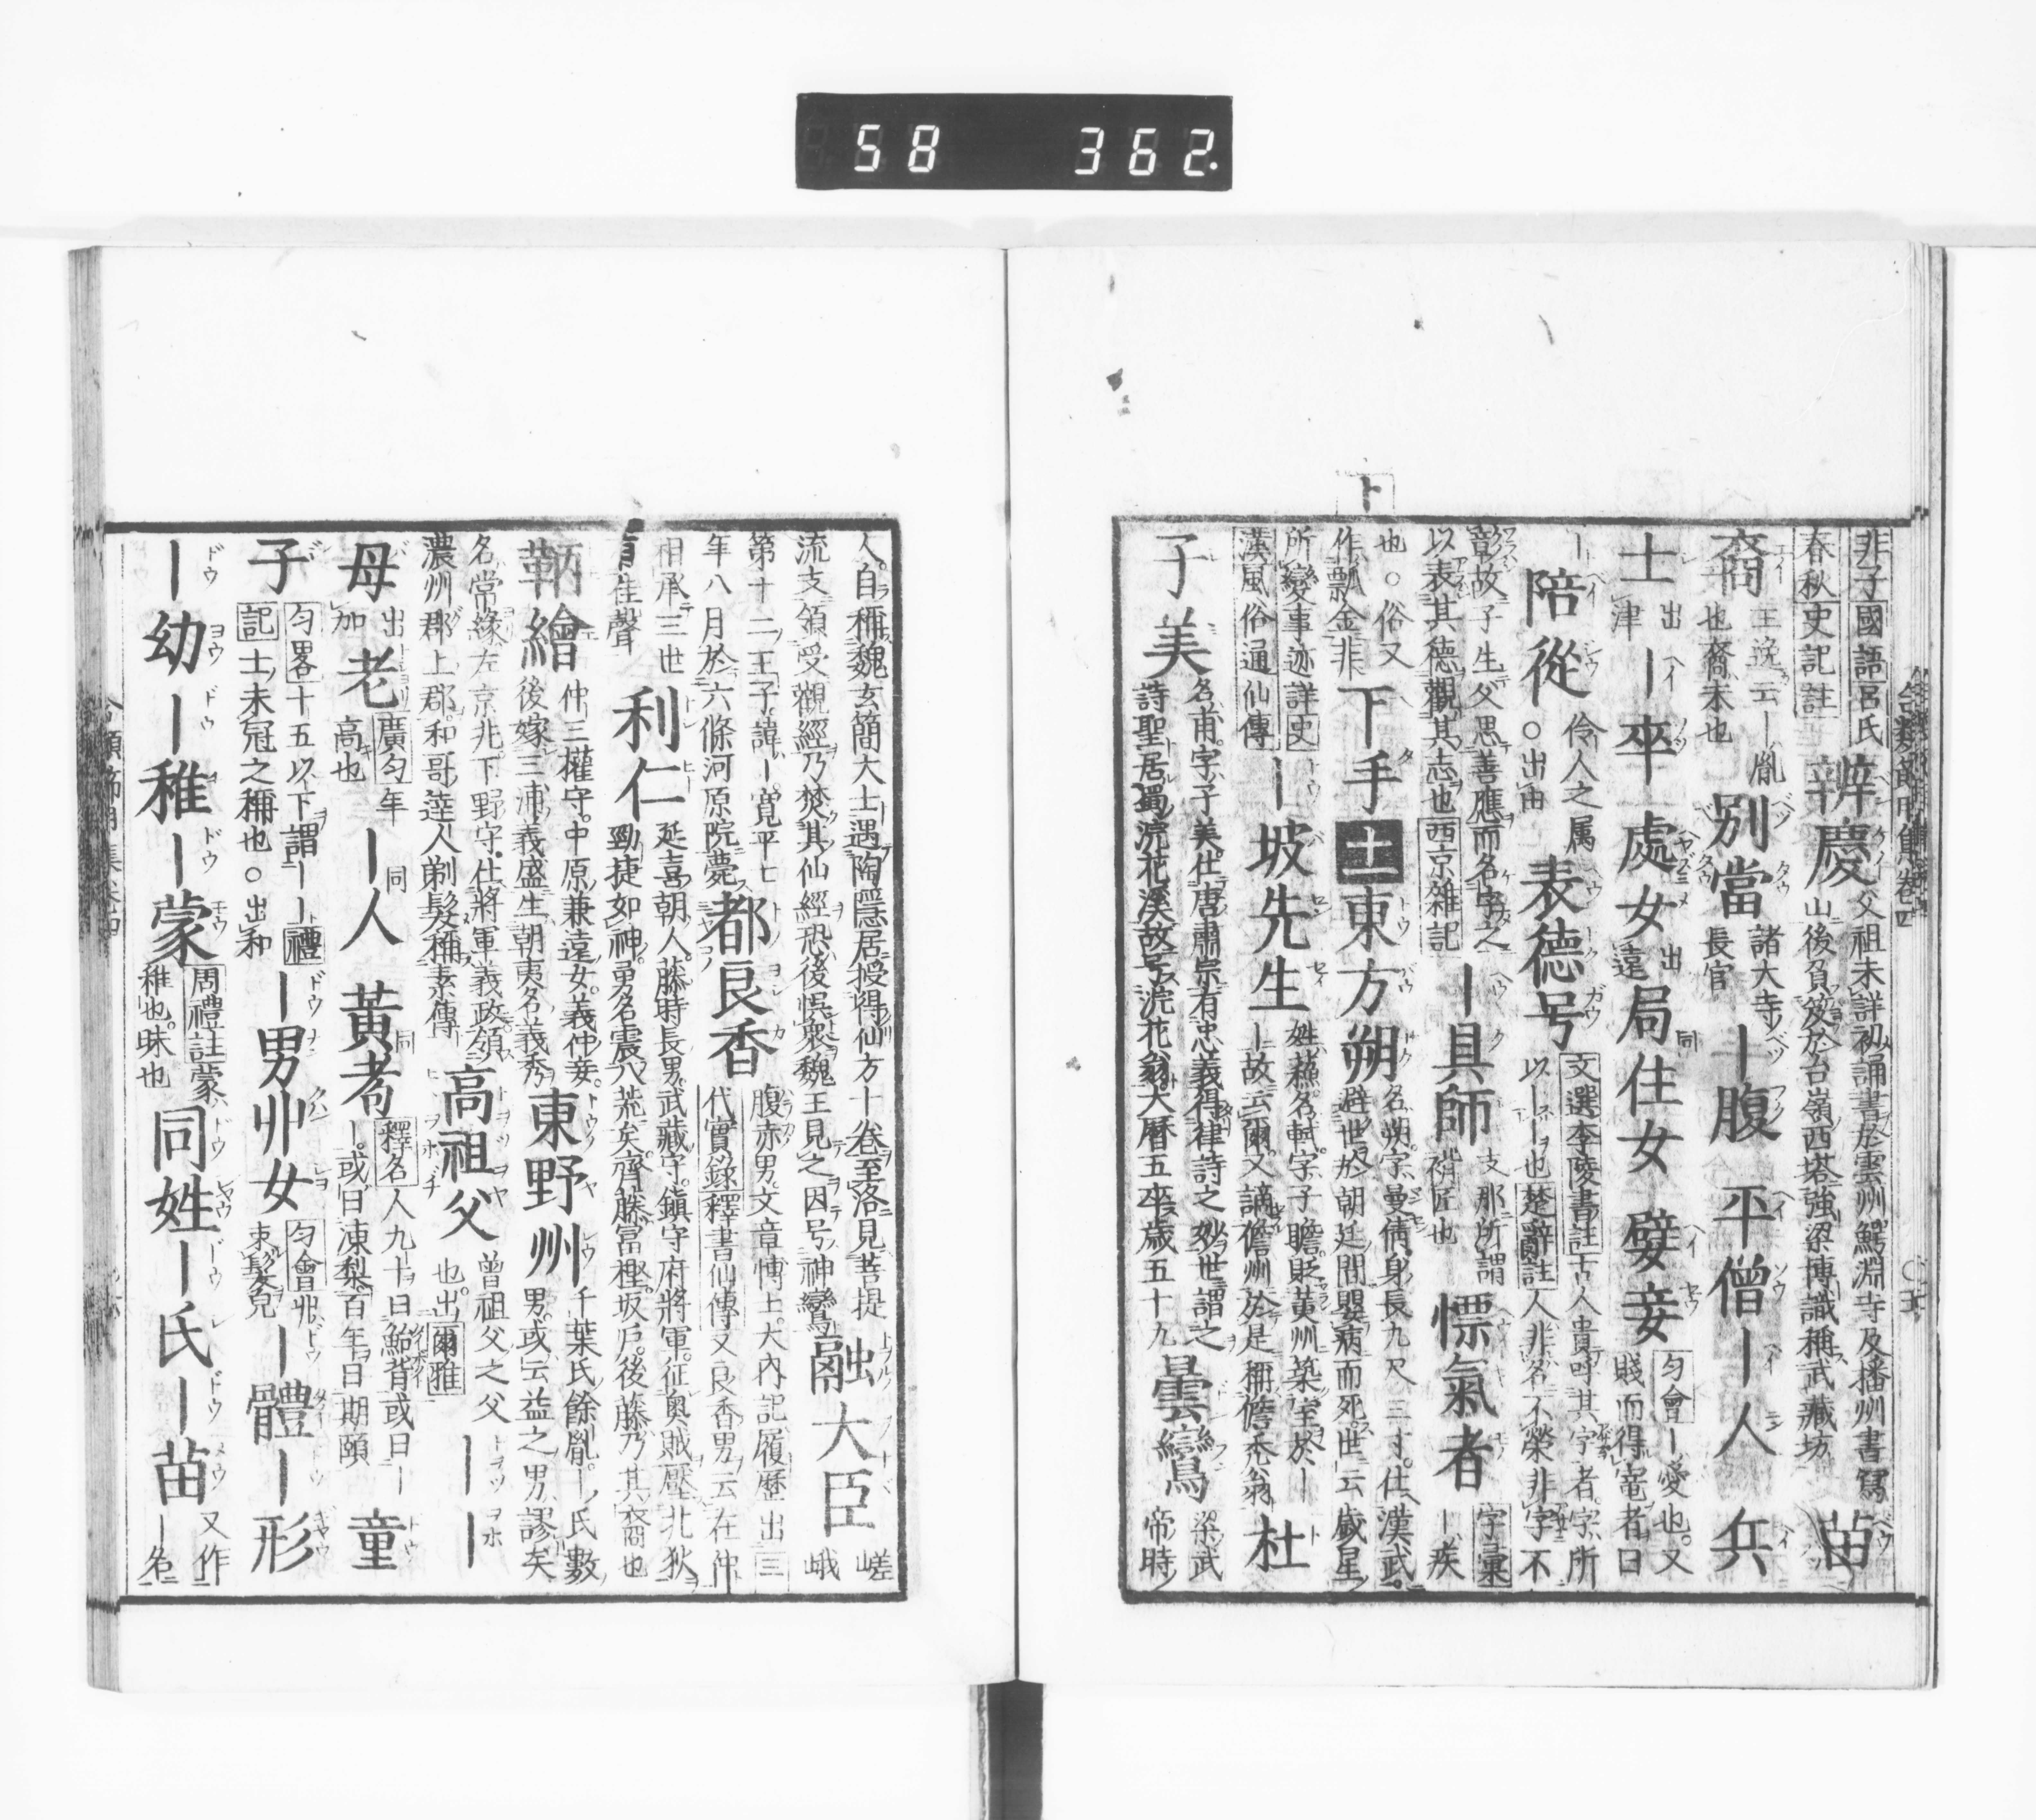 58 362
合類節用集卷四
非子國語呂氏
春秋史記註
辨慶
父祖未詳初誦書於雲州鰐淵寺及播州書寫
山後負笈於台嶺西塔強梁博識稱武藏坊
苗
裔
也裔末也
別當
諸大寺
長官
ー腹
平僧
ー人
兵
士
出
津
ー卒
處女
出
遠
局
同
住女
嬖妾
匀會ー愛也又
賤而得寵者曰
ー
陪從
伶人之属
○出由
表德号
文選李陵書註古人貴呼其字者字所
以ーー也楚辭註人非名不榮非字不
彰故子生父思善應而名字之
以表其德觀其志也西京雜記
ー具師
支那所謂
褙匠也
慓氣者
字彙
ー疾
也○俗又
作瓢金非
下手
ト
東方朔
名朔字曼倩身長九尺三寸仕漢武
避世於朝廷間嬰病而死世云歲星
所變事迹詳史
漢風俗通仙傳
ー坡先生
姓蘇名軾字子瞻貶黃州築室於ー
ー故云爾又謫儋州於是稱儋禿翁
杜
子美
名甫字子美仕唐肅宗有忠義得律詩之妙世謂之
詩聖居蜀浣花溪故号浣花翁大曆五卒歲五十九
曇鸞
梁武
帝時
人自稱魏玄簡大士遇陶隱居授得仙方十卷至洛見菩提
流支領受觀經乃焚其仙經恐後悞衆魏王見之因号神鸞
融大臣
嵯
峨
第十二王子諱ー寬平七
年八月於六條河原院薨
都良香
腹赤男文章博士大內記履歷出三
代實錄釋書仙傳又良香男云在仲
相承三世
有佳聲
利仁
延喜朝人藤時長男武藏守鎮守府將軍征奧賊壓北狄
勁捷如神勇名震八荒矣齊藤冨樫坂戶後藤乃其裔也
鞆繪
仲三權守中原兼遠女義仲妾
後嫁三浦義盛生朝夷名義秀
東野州
千葉氏餘胤ー氏數
男或云益之男謬矣
名常緣左京兆下野守仕將軍義政領
濃州郡上郡和哥達人剃髮稱素傳
高祖父
曾祖父之父
也出爾雅
ーーー
母
出
加
老
廣匀年
高也
ー人
同
黃耇
同
釋名人九十曰鮐背或曰ー
ー或曰凍梨百年曰期頤
童
子
匀畧十五以下謂ーー禮
記士未冠之稱也○出和
ー男
丱女
匀會丱
束髮皃
ー體
ー形
ー幼
ー稚
ー蒙
周禮註蒙
稚也昧也
同姓
ー氏
ー苗
又作
ー名